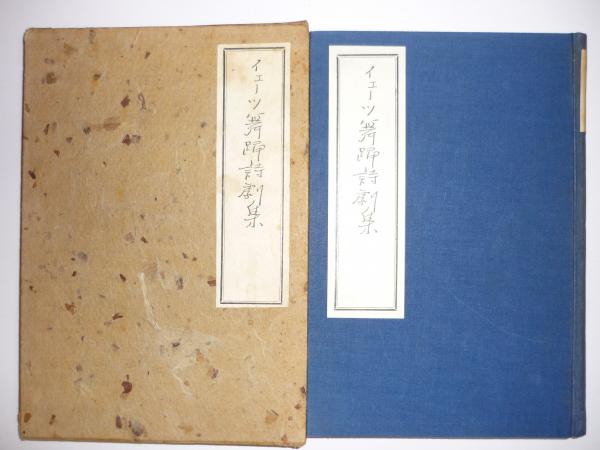 イェーツ舞踊詩劇集
イェーツ舞踊詩劇集